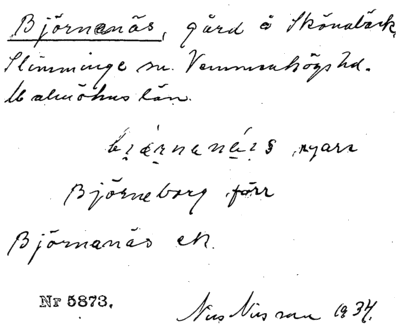 Björnanäs, gård å Skönabäck,
Slimminge sn. Vemmenhögs hd.
Malmöhus län.
nyare
Björneborg förr
Björnanäs ek.
Nr 5873.
Nils Nilsson 1934.